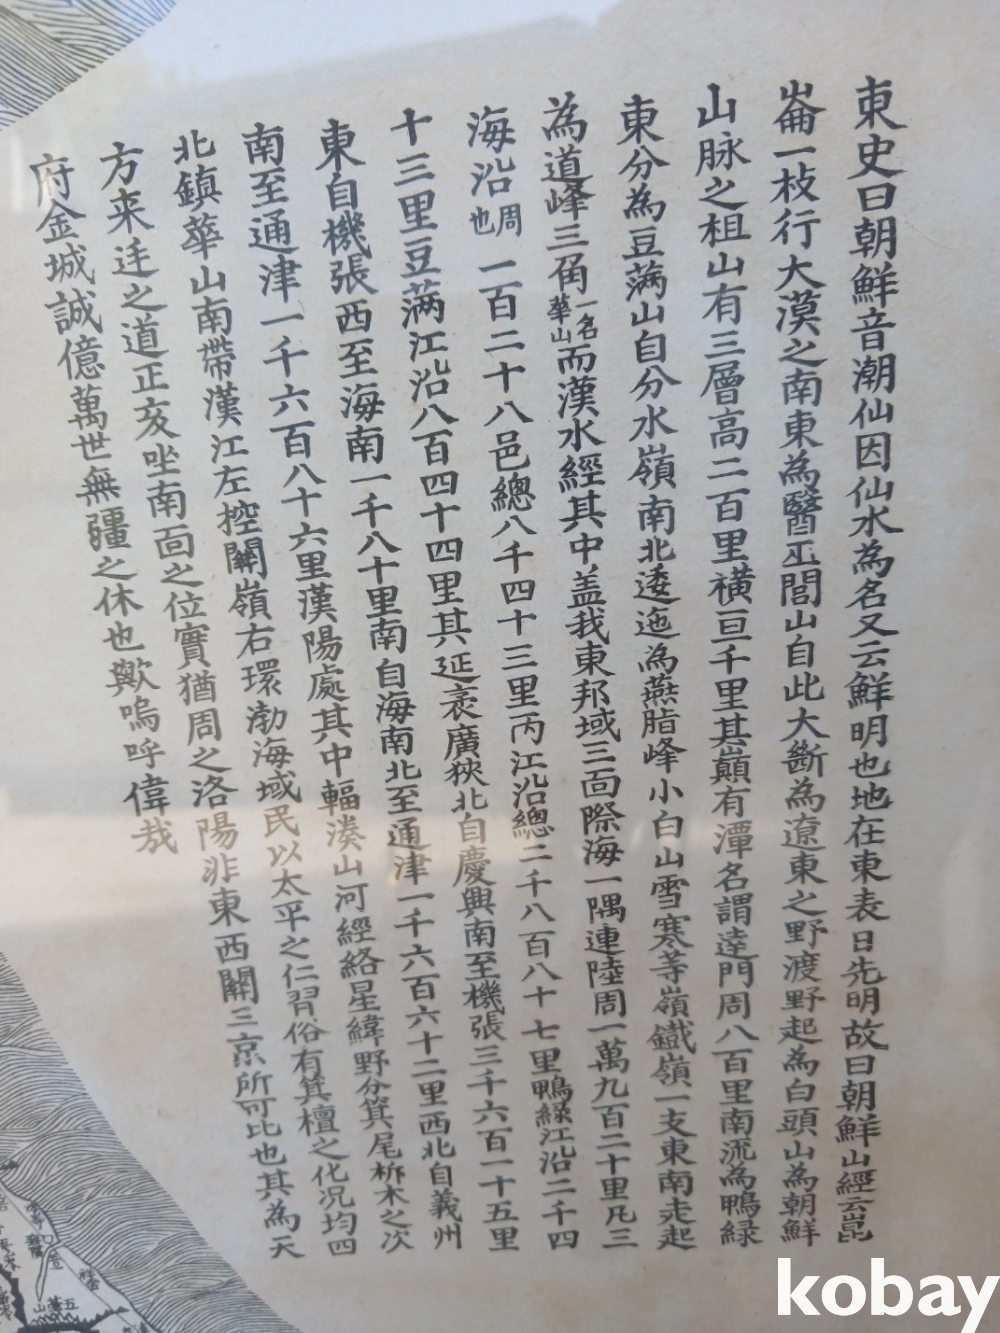 東史曰朝鮮音潮仙因仙水為名又云鮮明也地在東表日先明故曰朝鮮山經云崑
崙一枝行大漠之南東為醫巫閭山自此大斷為遼東之野渡野起為白頭山為朝鮮
山脉之祖山有三層高二百里橫亘千里其巔有潭名謂達門周八百里南流為鴨綠
東分為豆滿山自分水嶺南北逶迤為燕脂峰小白山雪寒等嶺鐵嶺一支東南走起
為道峰三角一名華山而漢水經其中盖我東邦域三面際海一隅連陸周一萬九百二十里凡三
海沿周也一百二十八邑總八千四十三里丙江沿總二千八百八十七里鴨綠江沿二千四
十三里豆滿江沿八百四十四里其延袤廣狹北自慶興南至機張三千六百一十五里
東自機張西至海南一千八十里南自海南北至通津一千六百六十二里西北自義州
南至通津一千六百八十六里漢陽處其中輻湊山河經絡星緯野分箕尾析木之次
北鎮華山南帶漢江左控關嶺右環渤海域民以太平之仁習俗有箕檀之化况均四
方来迋之道正亥坐南面之位實猶周之洛陽非東西關三京所可比也其為天
府金城誠億萬世無疆之休也歟嗚呼偉哉
kobay